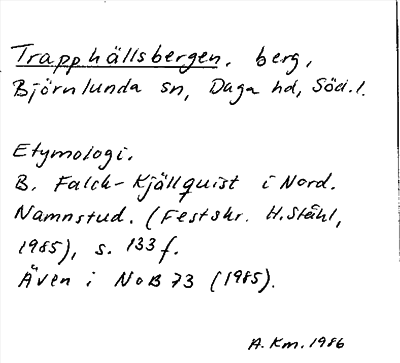 Trapphällsbergen, berg,
Björnlunda sn, Daga hd, Söd.l.
Etymologi.
B. Falck-Kjällquist i Nord.
Namnstud. (Festskr. H. Ståhl,
1985), s. 133 f.
Även i NoB 73 (1985).
A. Km. 1986